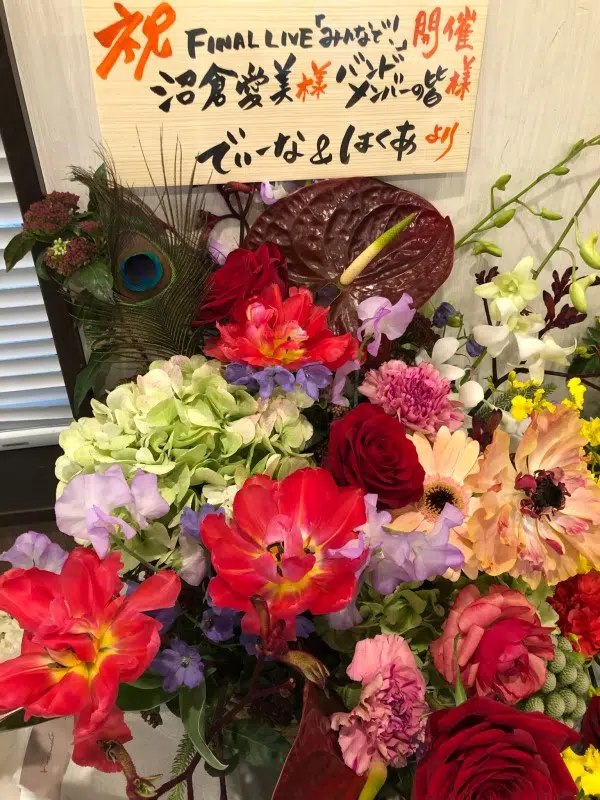 祝 FINAL LIVE「みんなで!」開催
沼倉愛美様 バンドメンバーの皆様
でぃーな&はくあより